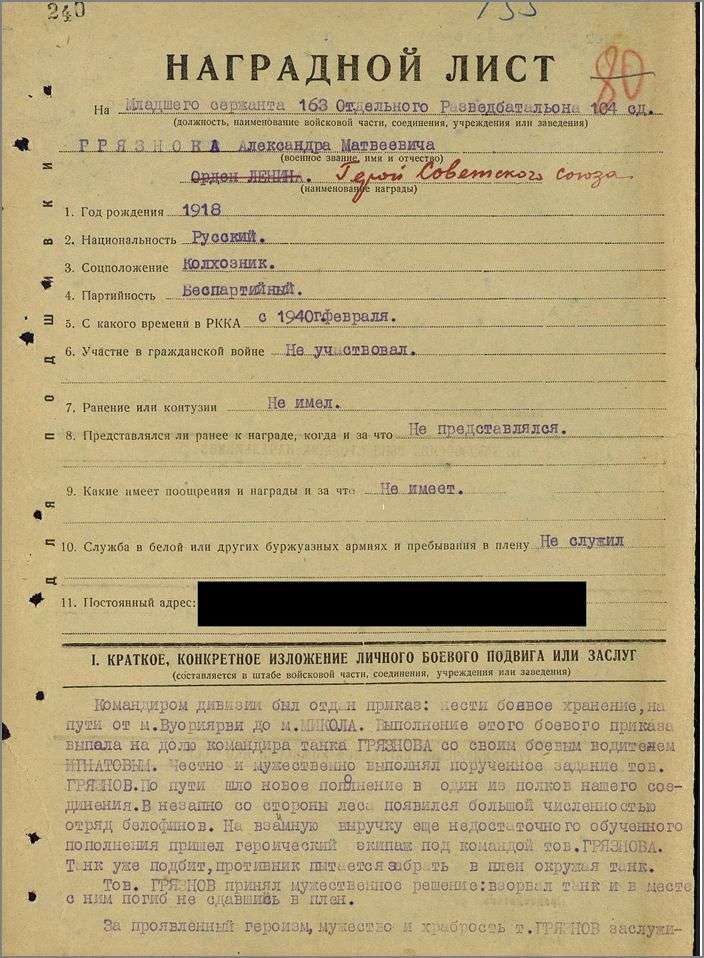 240
НАГРАДНОЙ ЛИСТ
80
На Младшего сержанта 163 Отдельного Разведбатальона 104 сд.
(должность, наименование войсковой части, соединения, учреждения или заведения)
ГРЯЗНОВА Александра Матвеевича
(военное звание, имя и отчество)
Орден ЛЕНИНА. Герой Советского союза
(наименование награды)
1. Год рождения 1918
2. Национальность Русский.
3. Соцположение Колхозник.
4. Партийность Беспартийный.
5. С какого времени в РККА с 1940г.февраля.
6. Участие в гражданской войне Не участвовал.
7. Ранение или контузии Не имел.
8. Представлялся ли ранее к награде, когда и за что Не представлялся.
9. Какие имеет поощрения и награды и за что Не имеет.
10. Служба в белой или других буржуазных армиях и пребывания в плену Не служил
11. Постоянный адрес:
ДЛЯ ПОДШИВКИ
I. КРАТКОЕ, КОНКРЕТНОЕ ИЗЛОЖЕНИЕ ЛИЧНОГО БОЕВОГО ПОДВИГА ИЛИ ЗАСЛУГ
(составляется в штабе войсковой части, соединения, учреждения или заведения)
Командиром дивизии был отдан приказ: нести боевое хранение,на
пути от м.Вуориярви до м.МИКОЛА. Выполнение этого боевого приказа
выпала на долю командира танка ГРЯЗНОВА со своим боевым водителем
ИГНАТОВЫМ. Честно и мужественно выполнял порученное задание тов.
ГРЯЗНОВ.По пути шло новое пополнение в один из полков нашего сое-
динения.В незапно со стороны леса появился большой численностью
отряд белофинов. На взаимную выручку еще недостаточного обученного
пополнения пришел героический экипаж под командой тов.ГРЯЗНОВА.
Танк уже подбит,противник пытается забрать в плен окружая танк.
Тов. ГРЯЗНОВ принял мужественное решение:взорвал танк и в месте
с ним погиб не сдавшись в плен.
За проявленный героизм,мужество и храбрость т.ГРЯЗНОВ заслужи-